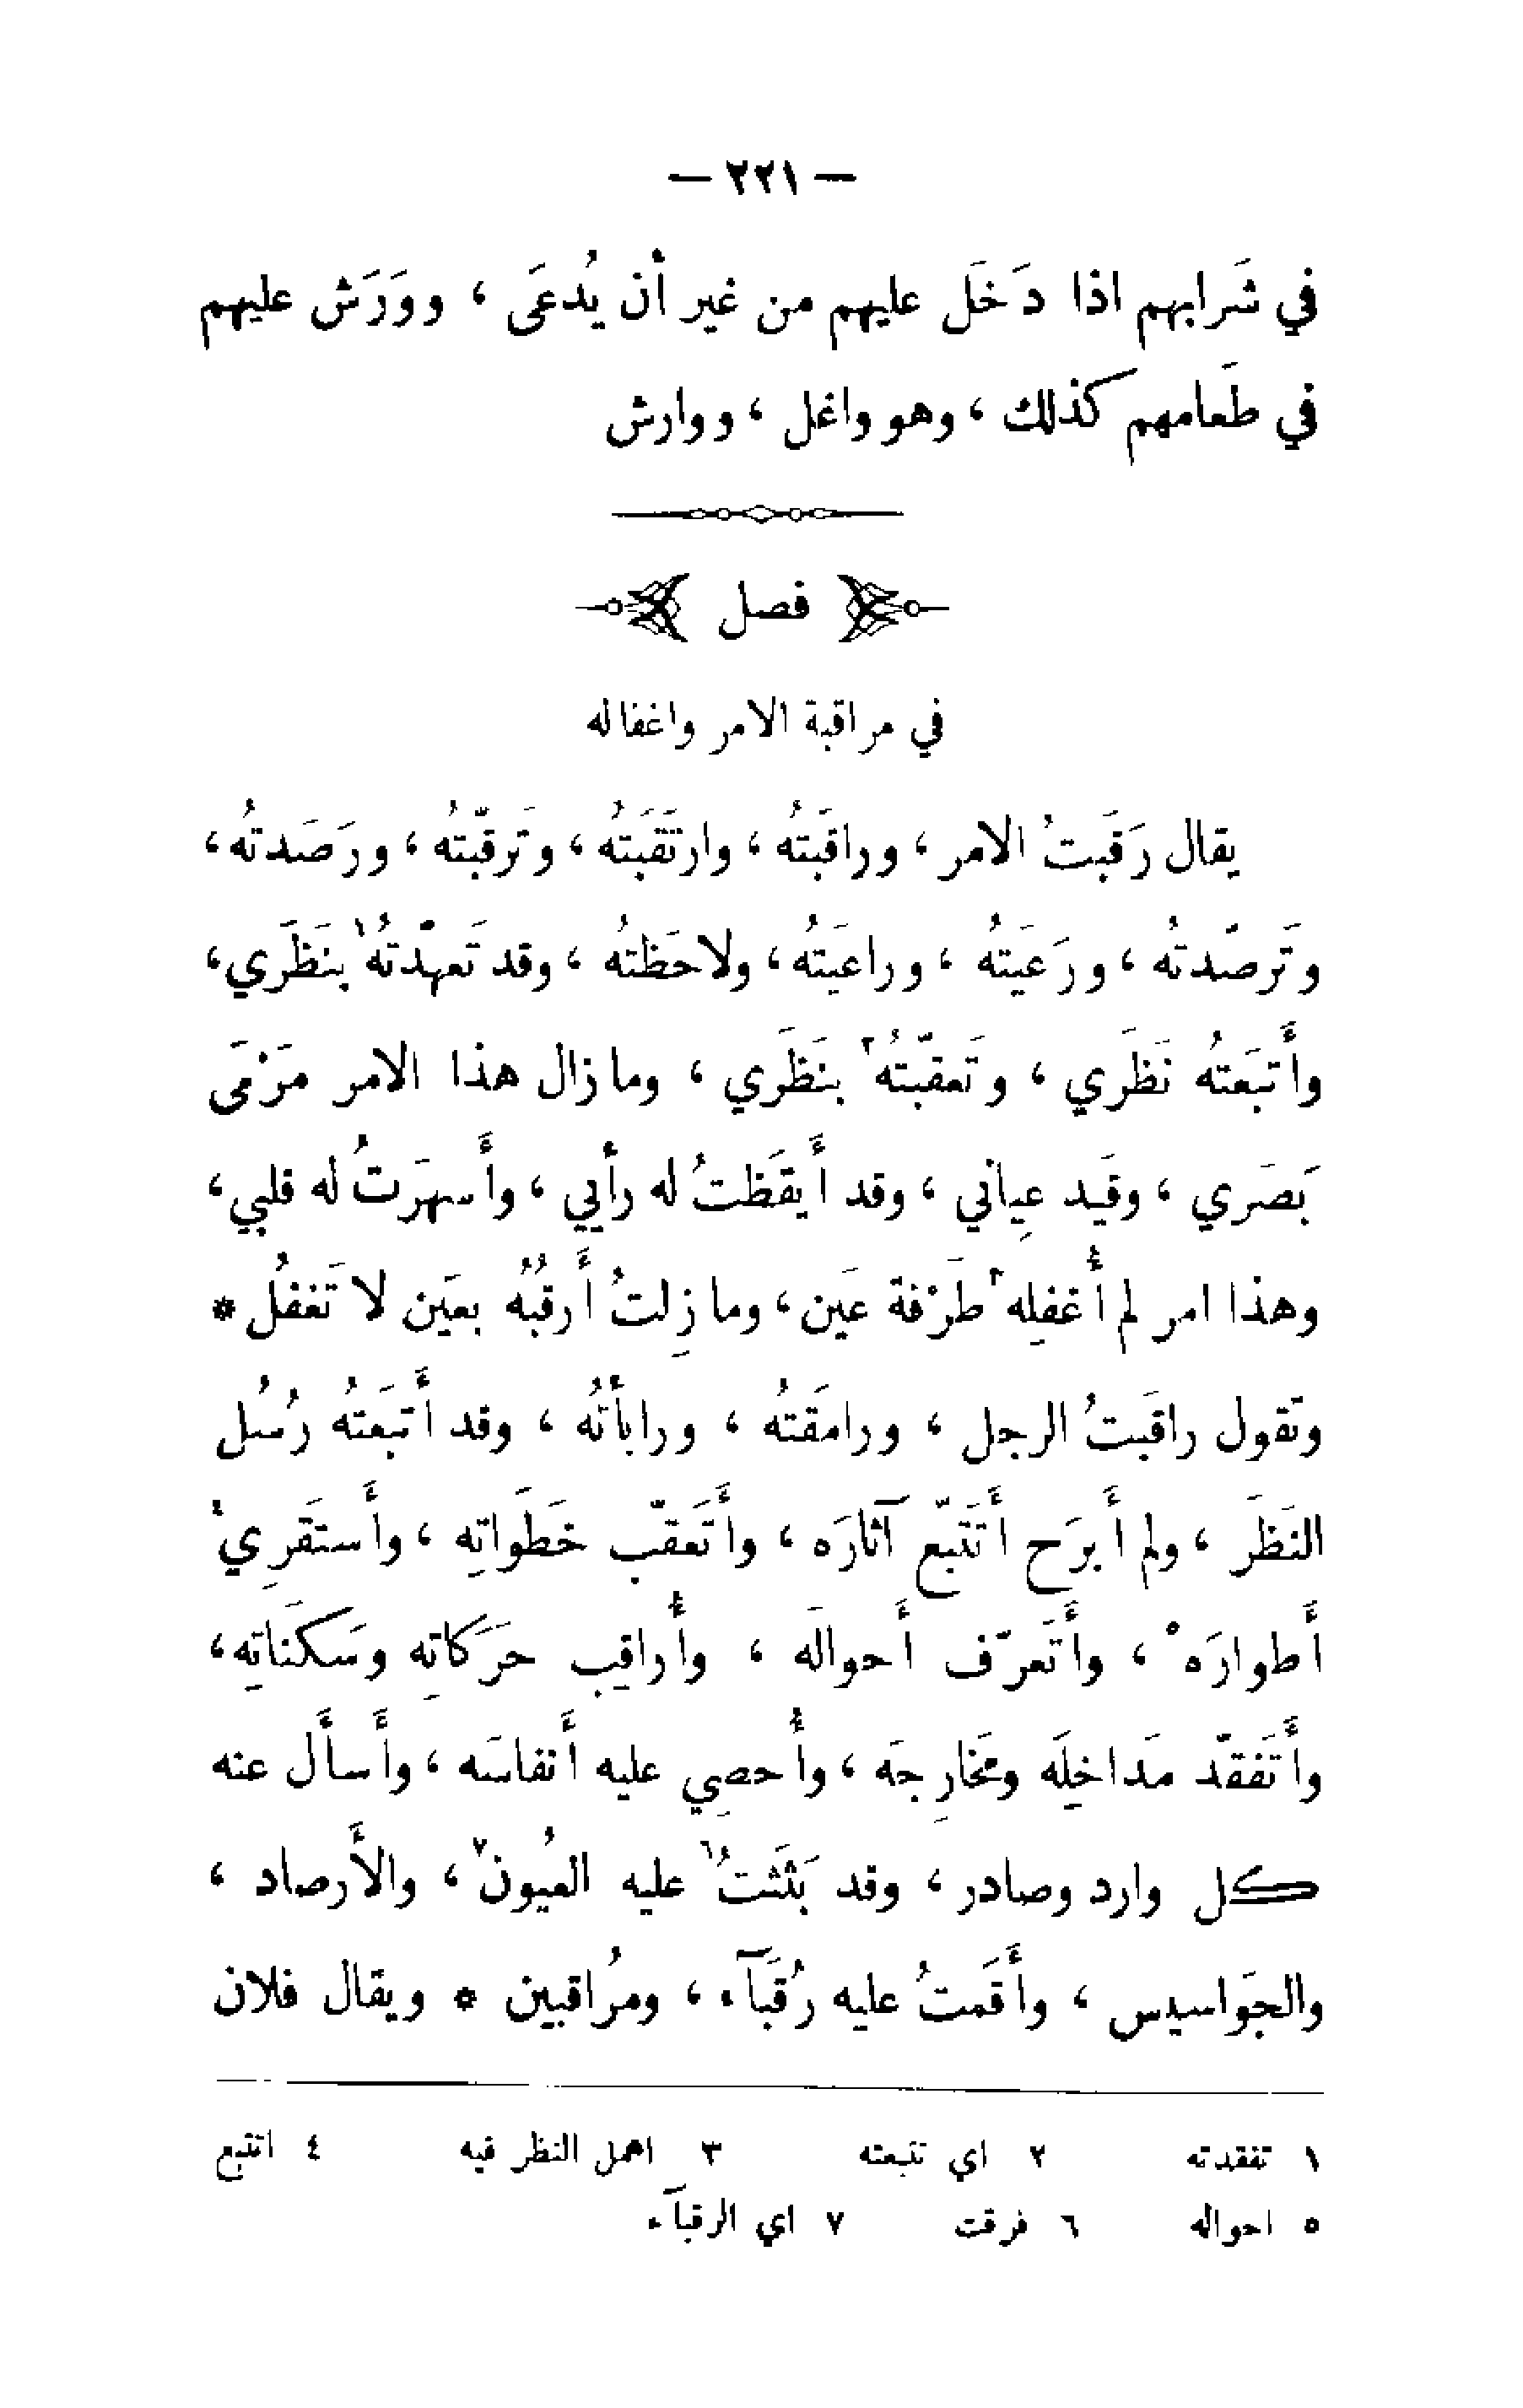 — ٢٢١ —
في شَرابهم اذا دَخَل عليهم من غير أن يُدعَى ، ووَرَش عليهم
في طَعامهم كذلك ، وهو واغل ، ووارش
فصل
في مراقبة الامر واغفاله
يقال رَقَبتُ الامر ، وراقَبتُه ، وارتَقَبتُه ، وتَرقّبتُه ، ورَصَدتُه ،
وتَرصّدتُه ، ورَعَيتُه ، وراعَيتُه ، ولاحَظتُه ، وقد تَعهّدتُه١ بنَظَري ،
وأَتبَعتُه نَظَري ، وتَعقّبتُه٢ بنَظَري ، وما زال هذا الامر مَرْمَى
بَصَري ، وقَيد عِياني ، وقد أَيقَظتُ له رأيي ، وأَسهَرتُ له قلبي ،
وهذا امر لم أُغفِله٣ طَرْفة عَين ، وما زِلتُ أَرقُبُه بعَين لا تَغفُل *
وتقول راقَبتُ الرجل ، ورامَقتُه ، ورابأتُه ، وقد أَتبَعتُه رُسُل
النَظَر ، ولم أَبرَح أَتَتَبّع آثارَه ، وأَتَعقّب خَطَواتِه ، وأَستَقرِي٤
أَطوارَه٥ ، وأَتَعرّف أَحوالَه ، وأُراقِب حَرَكاتِه وسَكَناتِه ،
وأَتَفقّد مَداخِلَه ومَخارِجَه ، وأُحصِي عليه أَنفاسَه ، وأَسأَل عنه
كل وارد وصادر ، وقد بَثَثتُ٦ عليه العُيون٧ ، والأَرصاد ،
والجَواسيس ، وأَقَمتُ عليه رُقَبآء ، ومُراقبين * ويقال فلان
١ تفقدته ٢ اي تتبعته ٣ اهمل النظر فيه ٤ اتتبع
٥ احواله ٦ فرقت ٧ اي الرقبآء